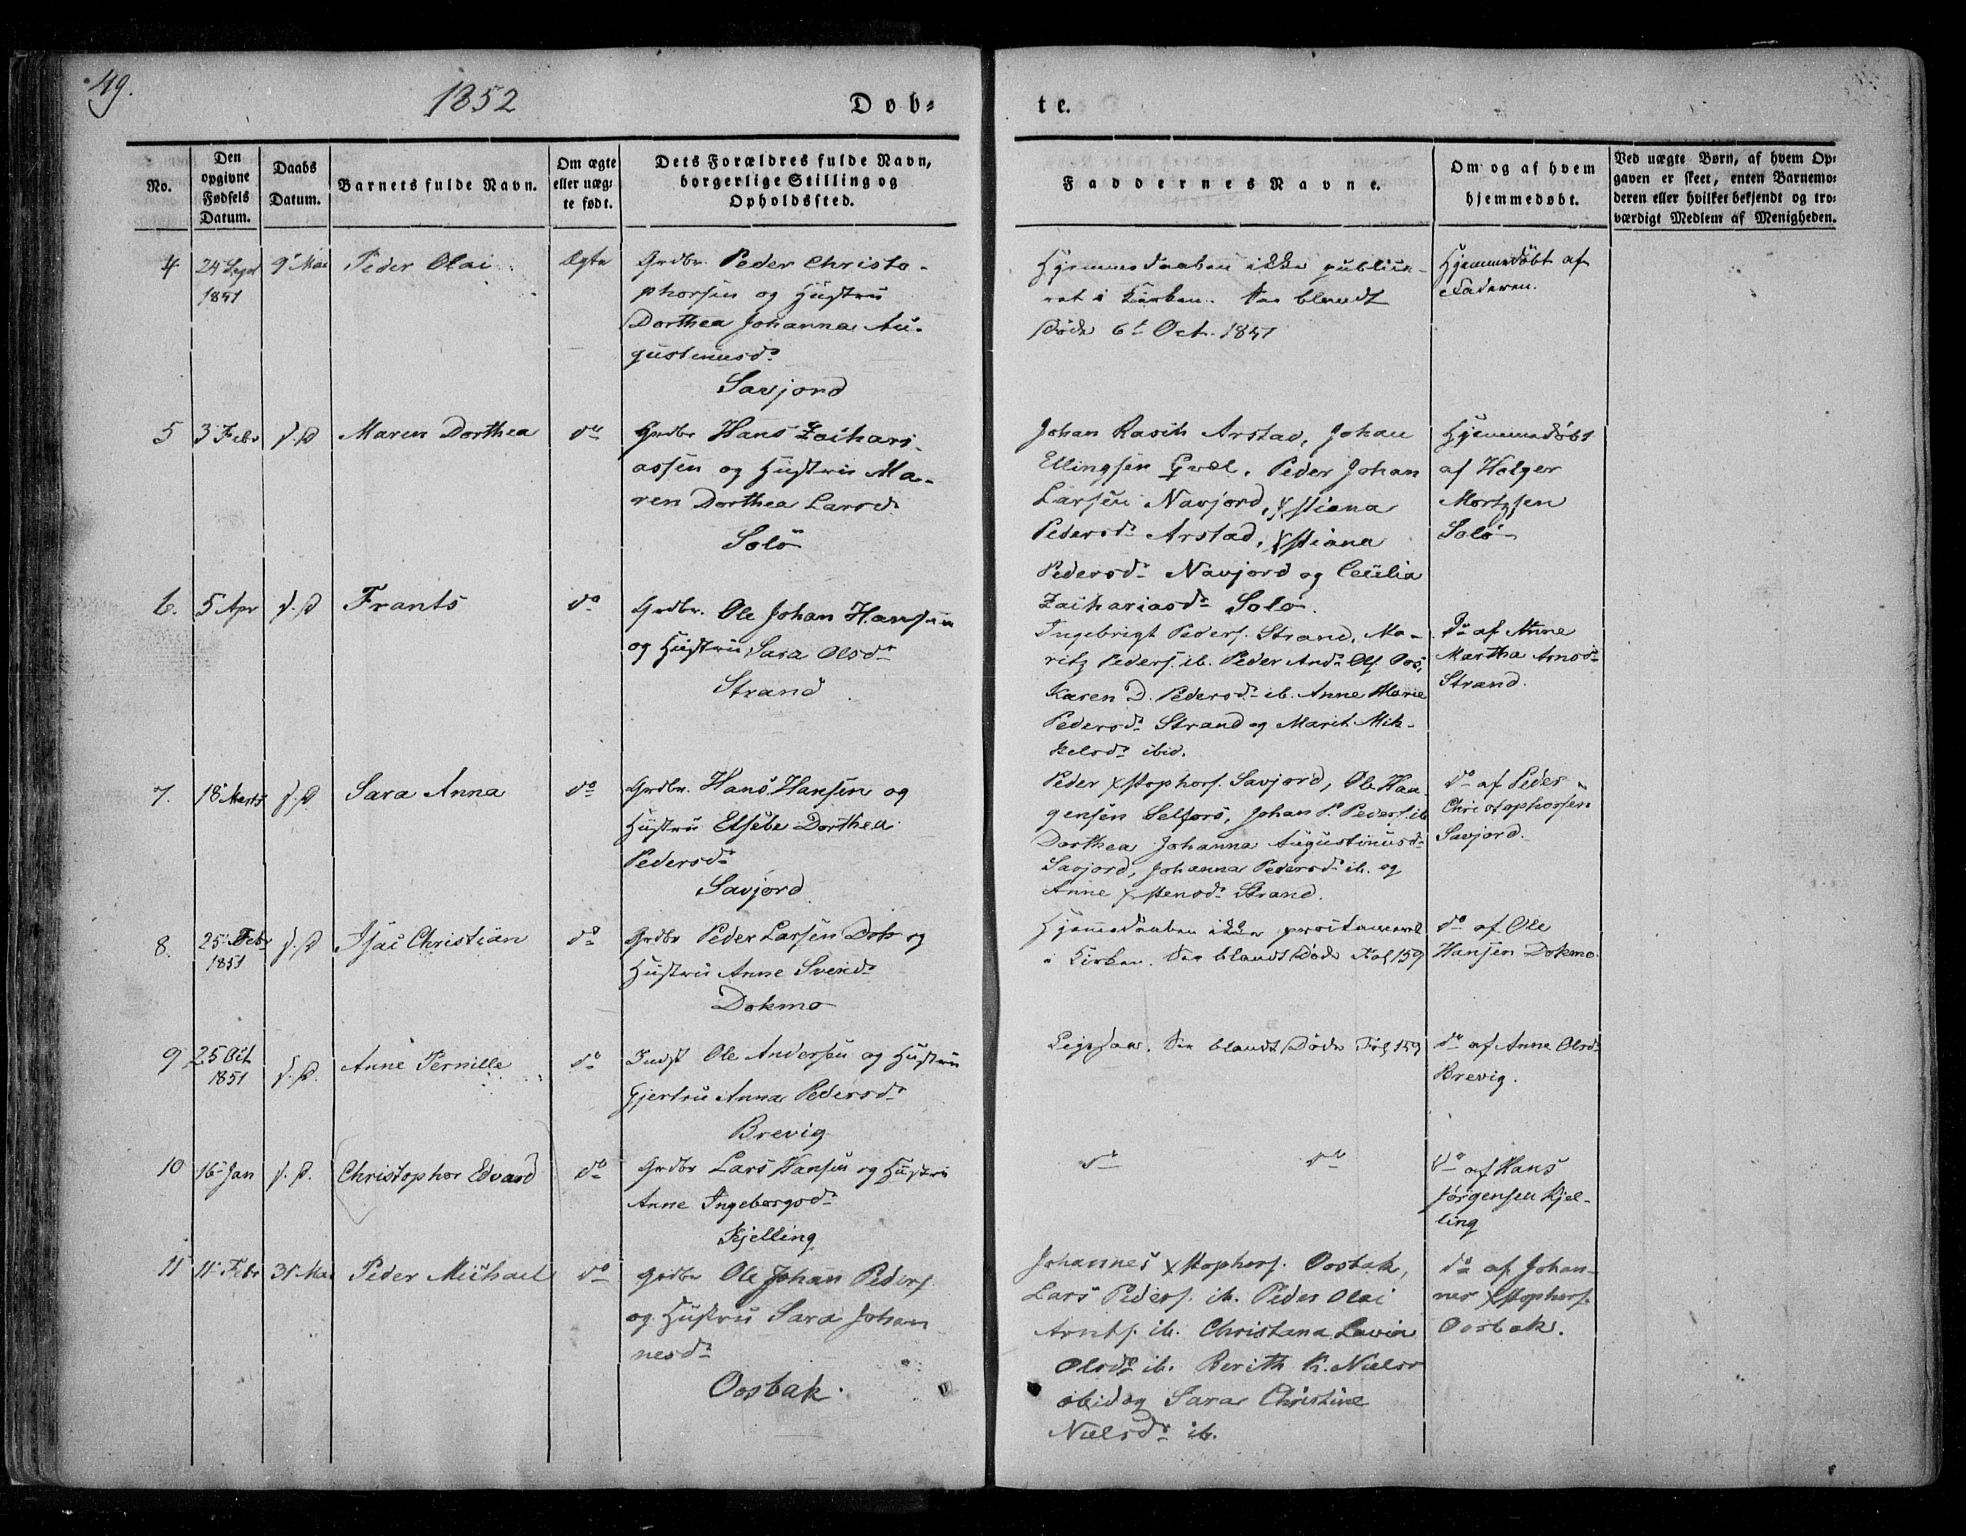 49.
1852
Døb-
te.
No.
Den
opgivne
Fødsels
Datum.
Daabs
Datum.
Barnets fulde Navn.
Om ægte
eller uæg-
te født.
Dets Forældres fulde Navn,
borgerlige Stilling og
Opholdssted.
Faddernes Navne.
Om og af hvem
hjemmedøbt.
Ved uægte Børn, af hvem Op-
gaven er skeet, enten Barnemo-
deren eller hvilket bekjendt og tro-
værdigt Medlem af Menigheden.
4
24 Sept
1851
9 Mai
Peder Olai
Ægte
Grdbr. Peder Christo-
phorsen og Hustru
Dorthea Johanna Au-
gustinusd.
Savjord
Hjemmedaaben ikke publice-
ret i Kirken. See blandt
Døde 6t Oct. 1851
Hjemmedøbt af
Faderen.
5
3 Febr
d. D
Maren Dorthea
do
Grdbr Hans Zachari
assen og Hustru Ma-
ren Dorthea Larsd.
Solö
Johan Arstad, Johan
Ellingsen Peder Johan
Larsen Navjord, Xstiana
Pedersd. Arstad, Xstiana
Pedersd. Navjord og Cecilia
Zachariasd. Solö.
Hjemmedøbt
af Holger
Mortzsen
Solö
6.
5 Apr
d. D
Frants
do
Grdbr. Ole Johan Hansen
og Hustru Sara Olsd.
Strand
Ingebrigt Peders. Strand, Ma-
ritz Peders. ib. Peder And. Ols. Oos,
Karen D. Pedersd. ib. Anne Marie
Pedersd. Strand og Marit Mik-
kelsd. ibid.
Do af Anne
Martha Arnsd.
Strand.
7.
18 Marts
d. D
Sara Anna
do
Grdbr. Hans Hansen og
Hustru Elsebe Dorthea
Pedersd.
Savjord
Peder Xstophors. Savjord, Ole Han-
gensen Selfors, Johan P. Peders. ib
Dorthea Johanna Augustinusd.
Savjord, Johanna Pedersd. ib. og
Anne Xstensd. Strand.
do af Peder
Christophorsen
Savjord.
8.
25 Febr
1851
d. D
Isac Christian
do
Grdbr Peder Larsen Dok og
Hustru Anne Svend.
Dokmo
Hjemmedaaben ikke
i Kirken. See blandt Døde Fol 159
do af Ole
Hansen Dokmo.
9
25 Oct
1851
d. D.
Anne Pernille
do
Indst Ole Andersen og Hustru
Gjertru Anna Pedersd.
Brevig
Ligesaa. See blandt Døde Fol 159
do af Anne Olsd.
Brevig.
10
16 Jan
d. D.
Christophor Edvard
do
Grdbr Lars Hansen og Hustru
Anne Ingeborgsd.
Kjelling
do do
do af Hans
Jørgensen Kjel-
ling
11
11 Febr
31 Mai
Peder Michael
do
Grdbr Ole Johan Peders.
og Hustru Sara Johan
nesd.
Oosbak.
Johannes Xstophers. Oosbak,
Lars Peders. ib. Peder Olai
Arnts. ib. Christana Lavin
Olsd. ib. Berith K. Niels
ibid og Sara Christine
Nielsd. ib.
do af Johan-
nes Xstophers.
Oosbak.